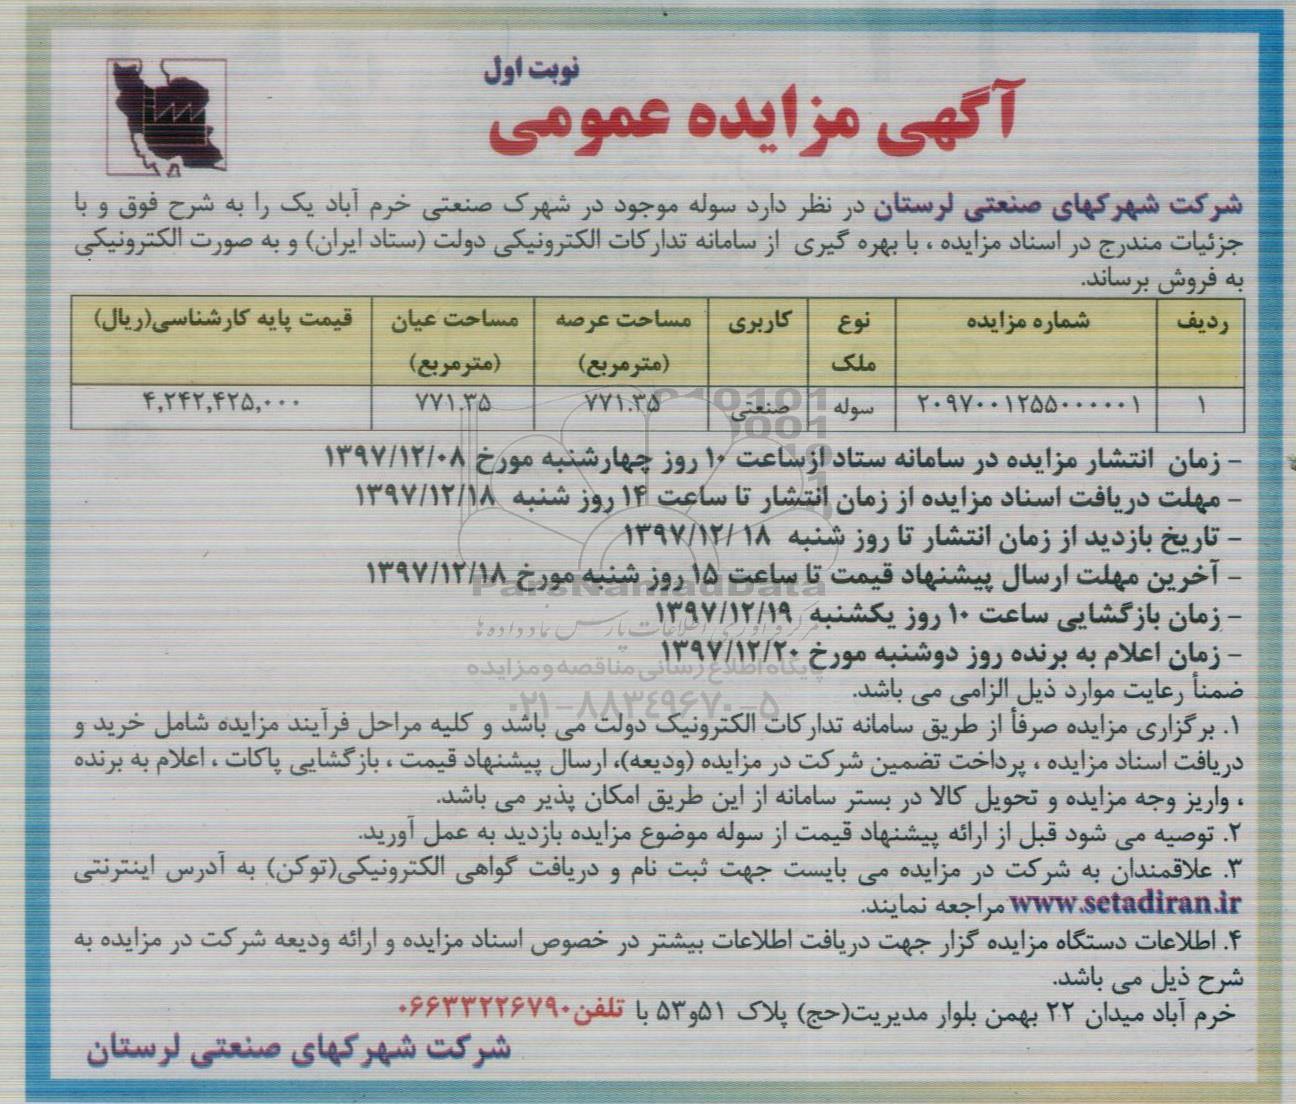 نوبت اول
آگهی مزایده عمومی
شرکت شهرکهای صنعتی لرستان در نظر دارد سوله موجود در شهرک صنعتی خرم آباد یک را به شرح فوق و با
جزئیات مندرج در اسناد مزایده ، با بهره گیری از سامانه تدارکات الکترونیکی دولت (ستاد ایران) و به صورت الکترونیکی
به فروش برساند.
ردیف شماره مزایده نوع ملک کاربری مساحت عرصه (مترمربع) مساحت عیان (مترمربع) قیمت پایه کارشناسی(ریال)
۱ ۲۰۹۷۰۰۱۲۵۵۰۰۰۰۰۱ سوله صنعتی ۷۷۱.۳۵ ۷۷۱.۳۵ ۴,۲۴۲,۴۲۵,۰۰۰
- زمان انتشار مزایده در سامانه ستاد ازساعت ۱۰ روز چهارشنبه مورخ ۱۳۹۷/۱۲/۰۸
- مهلت دریافت اسناد مزایده از زمان انتشار تا ساعت ۱۴ روز شنبه ۱۳۹۷/۱۲/۱۸
- تاریخ بازدید از زمان انتشار تا روز شنبه ۱۸ /۱۳۹۷/۱۲
- آخرین مهلت ارسال پیشنهاد قیمت تا ساعت ۱۵ روز شنبه مورخ ۱۳۹۷/۱۲/۱۸
- زمان بازگشایی ساعت ۱۰ روز یکشنبه ۱۳۹۷/۱۲/۱۹
- زمان اعلام به برنده روز دوشنبه مورخ ۱۳۹۷/۱۲/۲۰
ضمناً رعایت موارد ذیل الزامی می باشد.
۱. برگزاری مزایده صرفاً از طریق سامانه تدارکات الکترونیک دولت می باشد و کلیه مراحل فرآیند مزایده شامل خرید و
دریافت اسناد مزایده ، پرداخت تضمین شرکت در مزایده (ودیعه)، ارسال پیشنهاد قیمت ، بازگشایی پاکات ، اعلام به برنده
، واریز وجه مزایده و تحویل کالا در بستر سامانه از این طریق امکان پذیر می باشد.
۲. توصیه می شود قبل از ارائه پیشنهاد قیمت از سوله موضوع مزایده بازدید به عمل آورید.
۳. علاقمندان به شرکت در مزایده می بایست جهت ثبت نام و دریافت گواهی الکترونیکی(توکن) به آدرس اینترنتی
www.setadiran.ir مراجعه نمایند.
۴. اطلاعات دستگاه مزایده گزار جهت دریافت اطلاعات بیشتر در خصوص اسناد مزایده و ارائه ودیعه شرکت در مزایده به
شرح ذیل می باشد.
خرم آباد میدان ۲۲ بهمن بلوار مدیریت(حج) پلاک ۵۱و۵۳ با تلفن۰۶۶۳۳۲۲۶۷۹۰
شرکت شهرکهای صنعتی لرستان
ParsNamadData
پایگاه اطلاع رسانی مناقصه و مزایده
۰۲۱-۸۸۳۴۹۶۷۰-۵